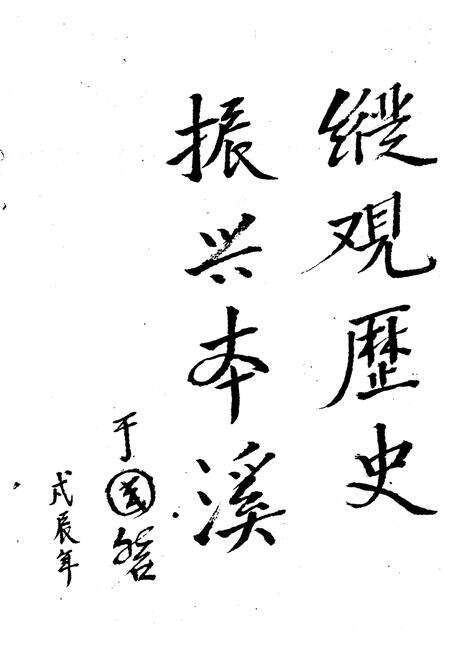 縱观歷史
振兴本溪
于国磐
戊辰年